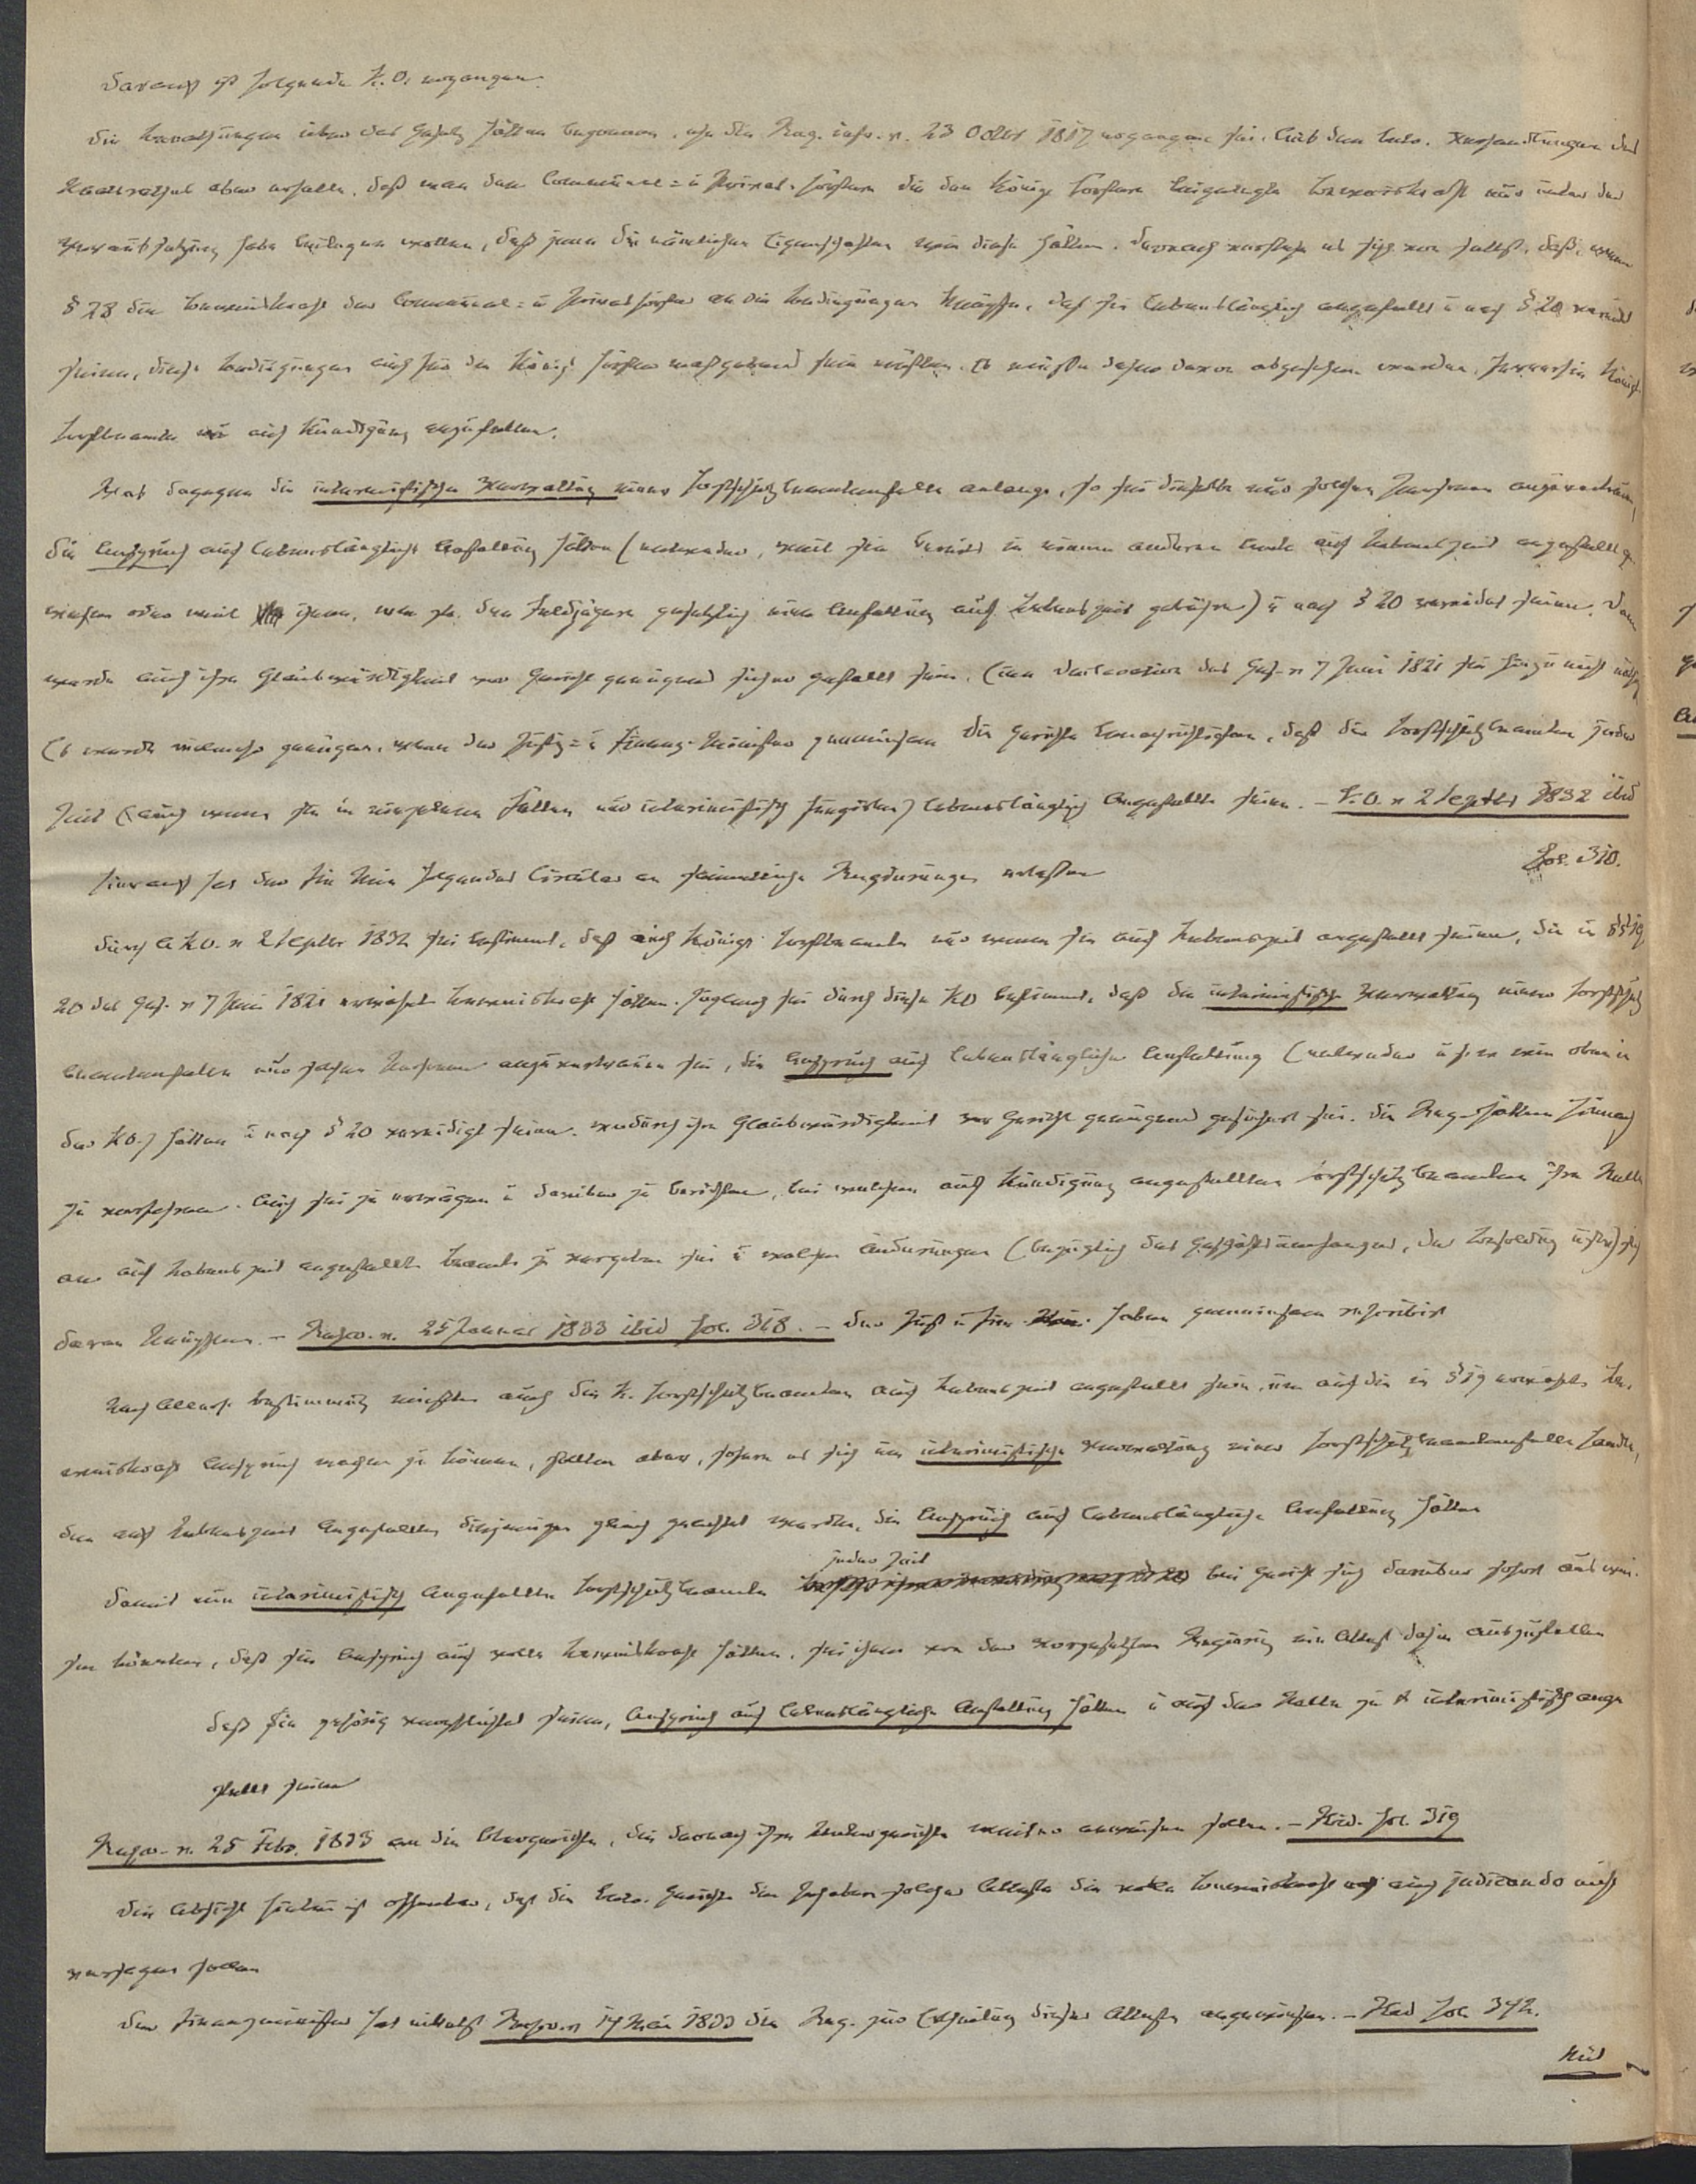 Darauf ist folgende K.O. ergangen.
Die Berathungen über das Gesetz hätten begonnen, ehe die Reg. instr. v. 23 Octbr 1817 ergangen sei. Aus den Verhandlungen des
Staatsraths aber erhelle, daß man den Communal- u Privat-förstern die den Königl Förstern beigelegte Beweiskraft nur unter der
Voraussetzung habe beilegen wollen, daß jene die nämlichen Eigenschaften wie diese hätten. Darnach verstehe es sich von selbst, daß, wenn
§ 28 die Beweiskraft der Communal- u Privatförster an die Bedingungen knüpfe, daß sie lebenslänglich angestellt u nach § 20 vereidet
seien, diese Bedingungen auch für die Königl Förster maßgebend sein müßten. Es müsse daher davon abgesehen werden, fernerhin Königl.
Forstbeamte nur auf Kündigung anzustellen.
Was dagegen die interimistische Verwaltung einer Forstschutzbeamtenstelle anlange, so sei dieselbe nur solchen Personen anzuvertrauen,
die Anspruch auf lebenslängliche Anstellung hätten (entweder, weil sie bereits in einem anderen Amte auf Lebenszeit angestellt ge
wesen oder weil ihnen, wie den Feldjägern gesetzlich eine Anstellung auf Lebenszeit gebühre) u nach § 20 vereidet seien. Dann
werde auch ihre Glaubwürdigkeit vor Gericht genügend sicher gestellt sein. Eine Declaration des Ges. v 7 Juni 1821 sei hierzu nicht nöthig
Es werde vielmehr genügen, wenn der Justiz- u Finanz-Minister gemeinsam die Gerichte benachrichtigten, daß die Forstschutzbeamten jeder
Zeit (auch wenn sie in einzelnen Fällen nur interimistisch fungirten) lebenslänglich Angestellte seien. – K.O. v 2 Septbr 1832 ibid
fol. 310.
Hierauf hat der Fin Min folgendes Circular an sämmtliche Regierungen erlassen
Durch A. K.O. v 2 Septbr 1832 sei bestimmt, daß auch Königl Forstbeamte nur wenn sie auf Lebenszeit angestellt seien, die in §§ 19,
20 des Ges. v 7 Juni 1821 erwähnte Beweiskraft hätten. Zugleich sei durch diese KO bestimmt, daß die interimistische Verwaltung einer Forstschutz
beamtenstelle nur solchen Personen anzuvertrauen sei, die Anspruch auf lebenslängliche Anstellung (entweder u s. w wie oben in
der KO.) hätten u nach § 20 vereidigt seien, wodurch ihre Glaubwürdigkeit vor Gericht genügend gesichert sei. Die Reg. hätten hienach
zu verfahren. Auch sei zu erwägen u darüber zu berichten, bei welchen auf Kündigung angestellten Forstschutzbeamten ihre Stelle
an auf Lebenszeit angestellte Beamte zu vergeben sei u welche Änderungen (bezüglich des Geschäftsumfanges, der Besoldung u.s.w.) sich
daran knüpften. – Rescr. v. 25 Januar 1833 ibid fol. 318. – Der Just u Fin Min. haben gemeinsam rescribirt
Nach Allerh. Bestimmung müßten auch die K. Forstschutzbeamten auf Lebenszeit angestellt sein, um auf die in § 19 erwähnte Be-
weiskraft Anspruch machen zu können, sollen aber, sofern es sich um interimistische Verwaltung einer Forstschutzbeamtenstelle handle,
den auf Lebenszeit Angestellten diejenigen gleich geachtet werden, die Anspruch auf lebenslängliche Anstellung hätten
jeder Zeit
Damit nun interimistisch angestellte Forstschutzbeamte bei Gericht sich darüber sofort auswei-
sen könnten, daß sie Anspruch auf volle Beweiskraft hätten, sei ihnen von der vorgesetzten Regierung ein Attest dahin auszustellen
daß sie gehörig verpflichtet seien, Anspruch auf lebenslängliche Anstellung hätten u auf der Stelle zu X interimistisch ange
stellt seien
Rescr. v. 25 Febr. 1833 an die Obergerichte, die darnach ihre Untergerichte weiter anweisen sollen. – Ibid. fol. 319
Die Absicht hierbei ist offenbar, daß die Gerichte den Inhabern solcher Atteste die volle Beweiskraft auch judicando nicht
versagen sollen
Der Finanzminister hat mittelst Rescr. v 14 Mai 1833 die Reg. zur Ertheilung dieser Atteste angewiesen. – Ibid fol. 342.